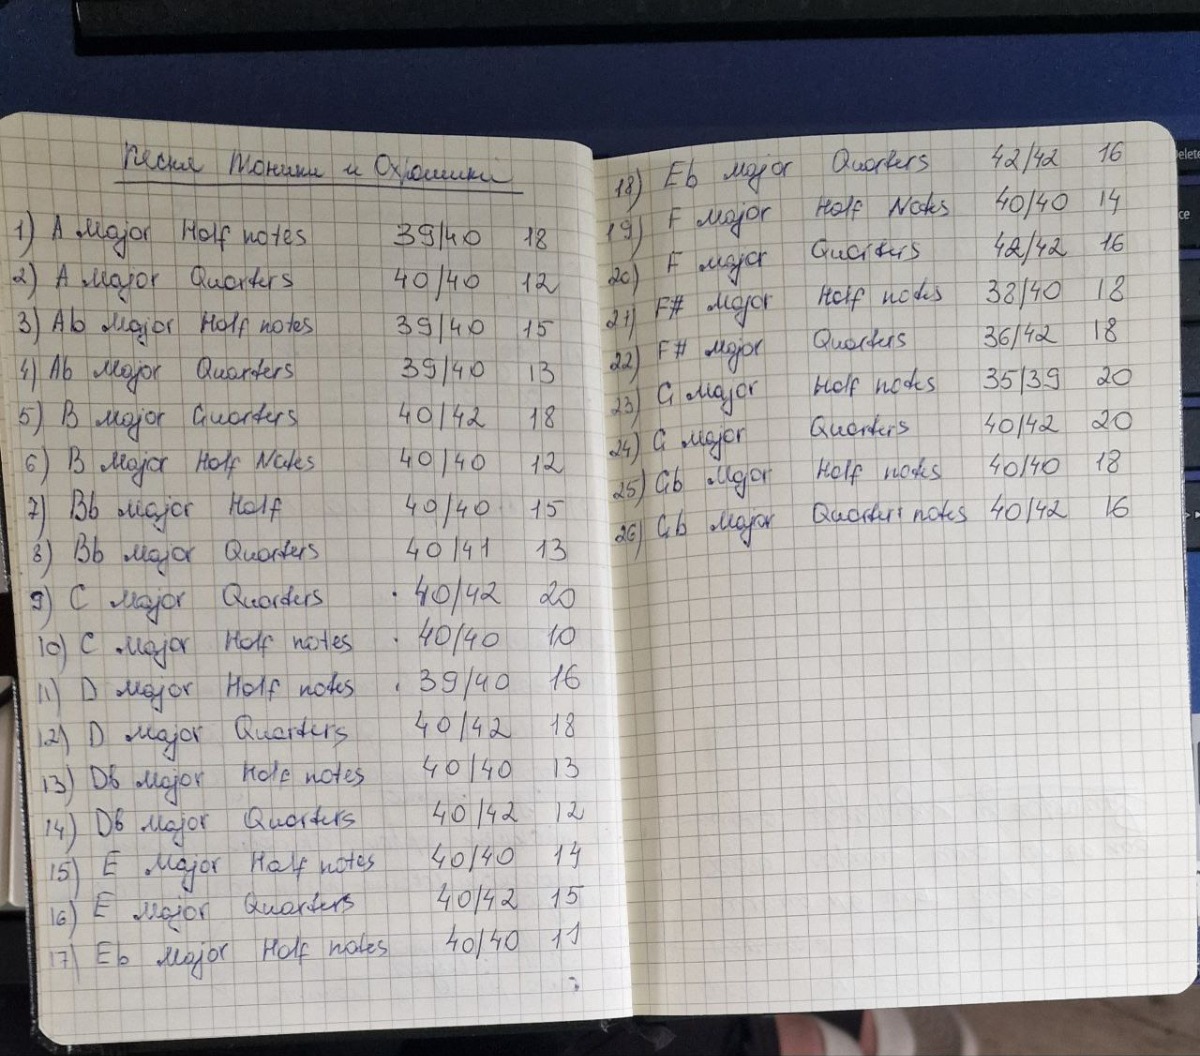 Песня Тоники и Охромики
1) A Major Half notes 39/40 18
2) A Major Quarters 40/40 12
3) Ab Major Half notes 39/40 15
4) Ab Major Quarters 39/40 13
5) B Major Quarters 40/42 18
6) B Major Half Notes 40/40 12
7) Bb Major Half 40/40 15
8) Bb Major Quarters 40/41 13
9) C Major Quarters · 40/42 20
10) C Major Half notes · 40/40 10
11) D Major Half notes · 39/40 16
12) D Major Quarters 40/42 18
13) Db Major Half notes 40/40 13
14) Db Major Quarters 40/42 12
15) E Major Half notes 40/40 14
16) E Major Quarters 40/42 15
17) Eb Major Half notes 40/40 11
18) Eb Major Quarters 42/42 16
19) F Major Half Notes 40/40 14
20) F Major Quarters 42/42 16
21) F# Major Half notes 38/40 18
22) F# Major Quarters 36/42 18
23) G Major Half notes 35/39 20
24) G Major Quarters 40/42 20
25) Gb Major Half notes 40/40 18
26) Gb Major Quarters notes 40/42 16
Delete